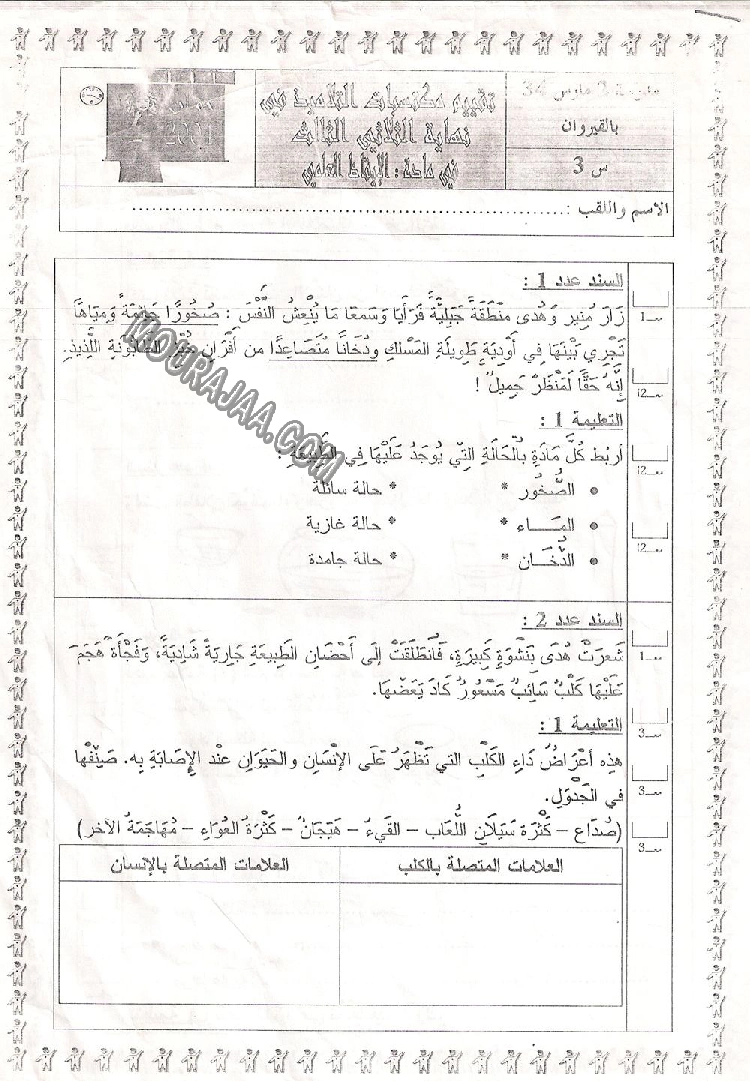 مدرسة 2 مارس 34
بالقيروان
س 3
تقييم مكتسبات التلاميذ في
نهاية الثلاثي الثالث
في مادة : الإيقاظ العلمي
الاسم واللقب :
السند عدد 1 :
زَارَ مُنِير وَهُدَى مِنْطَقَةً جَبَلِيَّةً فَرَأَيَا وَسَمِعَا مَا يُنْعِشُ النَّفْسَ : صُخُورًا جَاثِمَةً وَمِيَاهًا
تَجْرِي بَيْنَهَا فِي أَوْدِيَةٍ طَوِيلَةِ المَسْلَكِ وَدُخَانًا مُتَصَاعِدًا من أَفْرَانِ خُبْزِ الطَّابُونَةِ اللَّذِيذِ.
إِنَّهُ حَقًّا لَمَنْظَرٌ جَمِيلٌ !
التعليمة 1 :
أربط كُلَّ مَادَّةٍ بِالْحَالَةِ التِّي يُوجَدُ عَلَيْهَا فِي الطَّبِيعَةِ :
• الصُّخُور * * حالة سائلة
• المَـاء * * حالة غازية
• الدُّخَـان * * حالة جامدة
مـع1
مـع2
مـع2
مـع2
السند عدد 2 :
شَعَرَتْ هُدَى بِنَشْوَةٍ كَبِيرَةٍ، فَانْطَلَقَتْ إِلَى أَحْضَانِ الطَّبِيعَةِ جَارِيَةً شَادِيَةً، وَفَجْأَةً هَجَمَ
عَلَيْهَا كَلْبٌ سَائِبٌ مَسْعُورٌ كَادَ يَعَضُّهَا.
التعليمة 1 :
هذِه أَعْرَاضُ دَاءِ الكَلْبِ التي تَظْهَرُ عَلَى الإِنْسَانِ والحَيَوَانِ عِنْد الإِصَابَةِ بِه. صَنِّفْهَا
فِي الجَدْوَلِ.
(صُدَاع – كَثْرَة سَيَلَانِ اللُّعَاب – القَيْءُ – هَيَجَانٌ – كَثْرَةُ العُوَاءِ – مُهَاجَمَةُ الآخر)
العلامات المتصلة بالكلب العلامات المتصلة بالإنسان
مـع1
مـع3
مـع3
مـع3
MOURAJAA.COM